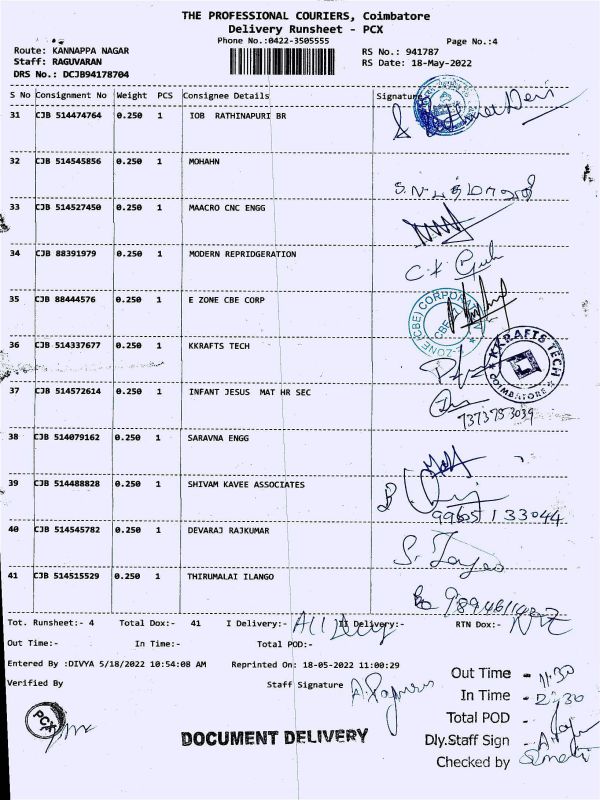 THE PROFESSIONAL COURIERS, Coimbatore
Delivery Runsheet - PCX
Phone No.:0422-3505555 Page No.:4
Route: KANNAPPA NAGAR RS No.: 941787
Staff: RAGUVARAN RS Date: 18-May-2022
DRS No.: DCJB94178704
S No Consignment No Weight PCS Consignee Details Signature
31 CJB 514474764 0.250 1 IOB RATHINAPURI BR
32 CJB 514545856 0.250 1 MOHAHN
33 CJB 514527450 0.250 1 MAACRO CNC ENGG
34 CJB 88391979 0.250 1 MODERN REPRIDGERATION
35 CJB 88444576 0.250 1 E ZONE CBE CORP
ZONE (CBE) CORPORATION
CBE
36 CJB 514337677 0.250 1 KKRAFTS TECH
KKRAFTS TECH
COIMBATORE
37 CJB 514572614 0.250 1 INFANT JESUS MAT HR SEC
7373753039
38 CJB 514079162 0.250 1 SARAVNA ENGG
39 CJB 514488828 0.250 1 SHIVAM KAVEE ASSOCIATES
99651 33044
40 CJB 514545782 0.250 1 DEVARAJ RAJKUMAR
41 CJB 514515529 0.250 1 THIRUMALAI ILANGO
Tot. Runsheet:- 4 Total Dox:- 41 I Delivery:- All II Delivery:- RTN Dox:-
Out Time:- In Time:- Total POD:-
Entered By :DIVYA 5/18/2022 10:54:08 AM Reprinted On: 18-05-2022 11:00:29
Verified By Staff Signature
Out Time - 11.30
In Time - 2.30
Total POD -
Dly.Staff Sign -
Checked by
PCF
DOCUMENT DELIVERY